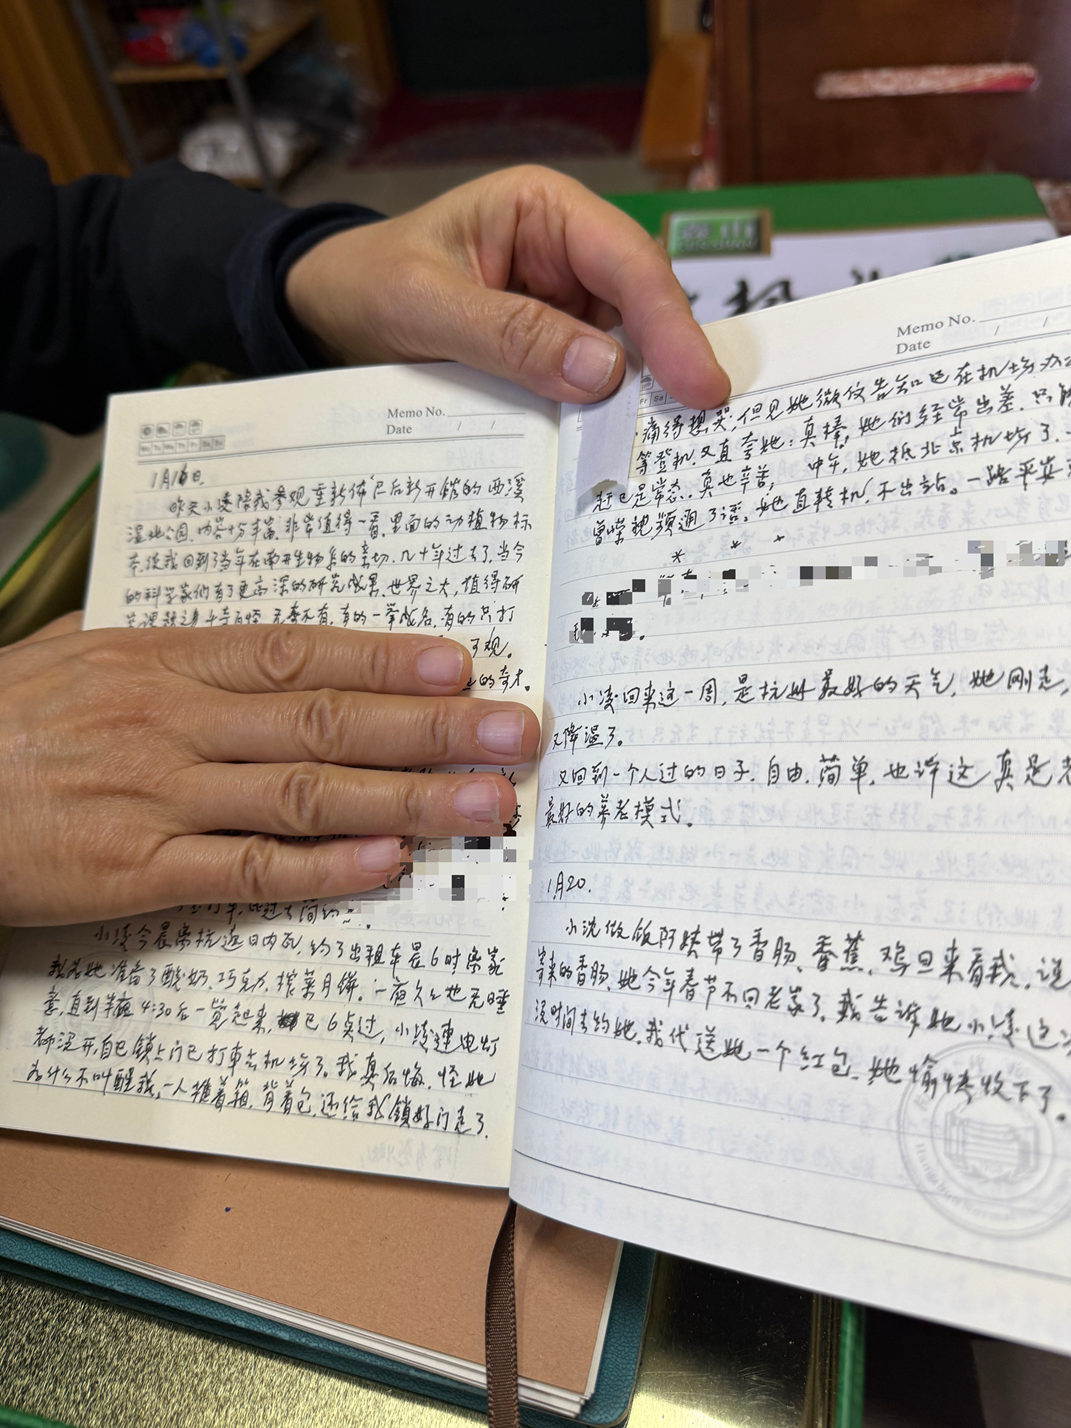 Memo No.
Date / /
1月16日
昨天小凌陪我参观重新修后新开馆的西溪
湿地公园,内容十分丰富,非常值得一看,里面的动植物标
本,使我回到了当年在南开生物系的亲切,几十年过去了,当今
的科学家们有了更高深的研究成果,世界之大,值得研
究课题之多 千奇百怪 无奇不有,有的一举成名,有的只打
可观。
的奇才。
小凌今晨离杭返日内瓦,约了出租车晨6时来家
我为她准备了酸奶,巧克力,榨菜月饼。一夜久久地无睡
意,直到半夜4:30后一觉起来,已6点过,小凌连电灯
都没开,自已锁上门已打車去机场了。我真后悔,怪她
为什么不叫醒我,一人推着箱,背着包,还给我锁好门走了.
Memo No.
Date / /
痛得想哭,但见她微信告知已在机场办
等登机,又直夸她:真棒,她们经常出差,
赶已是常态..真也辛苦, 中午,她抵北京机场了.
曾嵘视频通了话,她直转机,不出站。一路平安
小凌回来这一周,是杭州最好的天气,她刚走,
又降温了。
又回到一个人过的日子,自由,简单,也许这真是老
最好的养老模式。
1月20.
小沈做饭阿姨带了香肠、香蕉、鸡旦来看我,说
寄来的香肠,她今年春节不回老家了,我告诉她小凌这次
没时间去约她,我代送她一个红包,她愉快收下了。